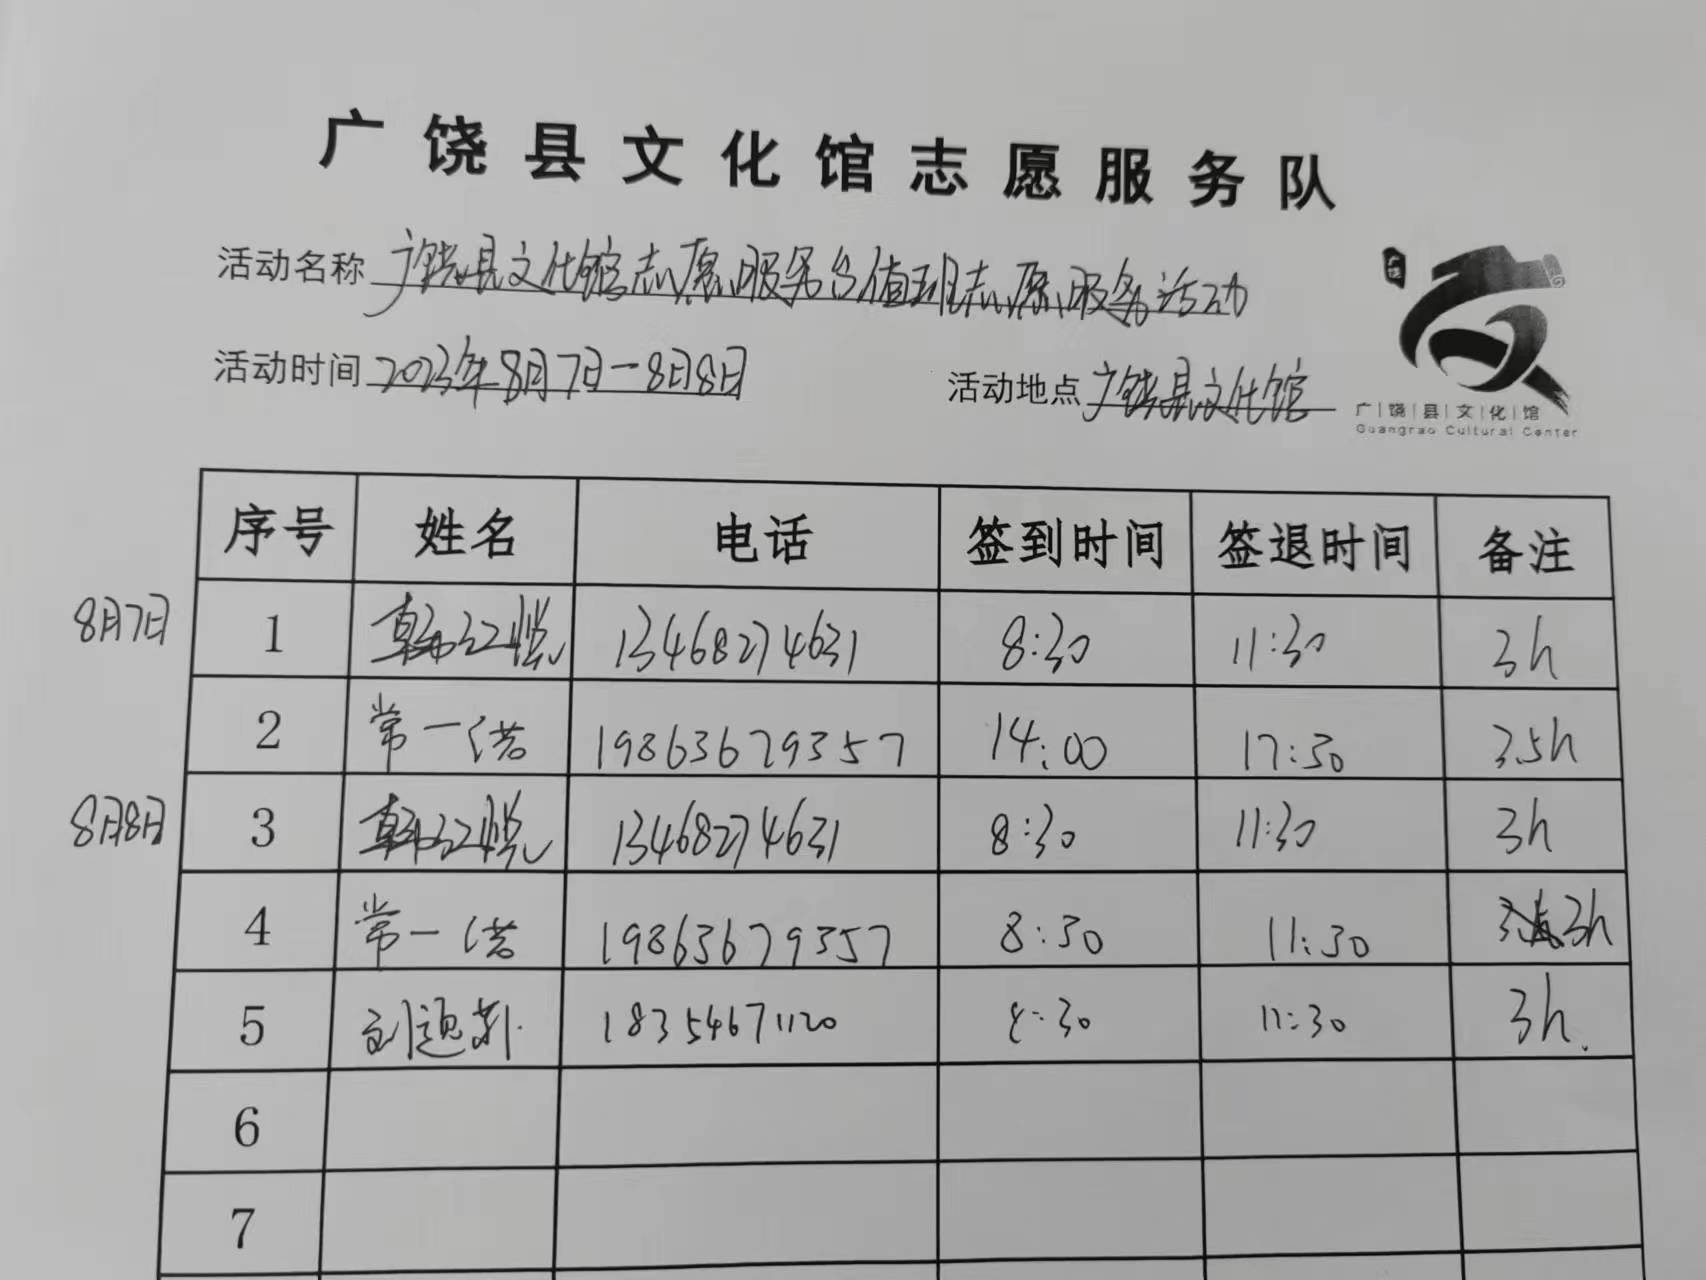 广饶县文化馆志愿服务队
活动名称 广饶县文化馆志愿服务台值班志愿服务活动
广饶
活动时间 2023年8月7日-8月8日 活动地点 广饶县文化馆
广|饶|县|文|化|馆
Guangrao Cultural Center
序号 姓名 电话 签到时间 签退时间 备注
8月7日 1 韩江悦 13468274631 8:30 11:30 3h
2 常一诺 19863679357 14:00 17:30 3.5h
8月8日 3 韩江悦 13468274631 8:30 11:30 3h
4 常一诺 19863679357 8:30 11:30 3h
5 刘 18354671120 8:30 11:30 3h.
6
7